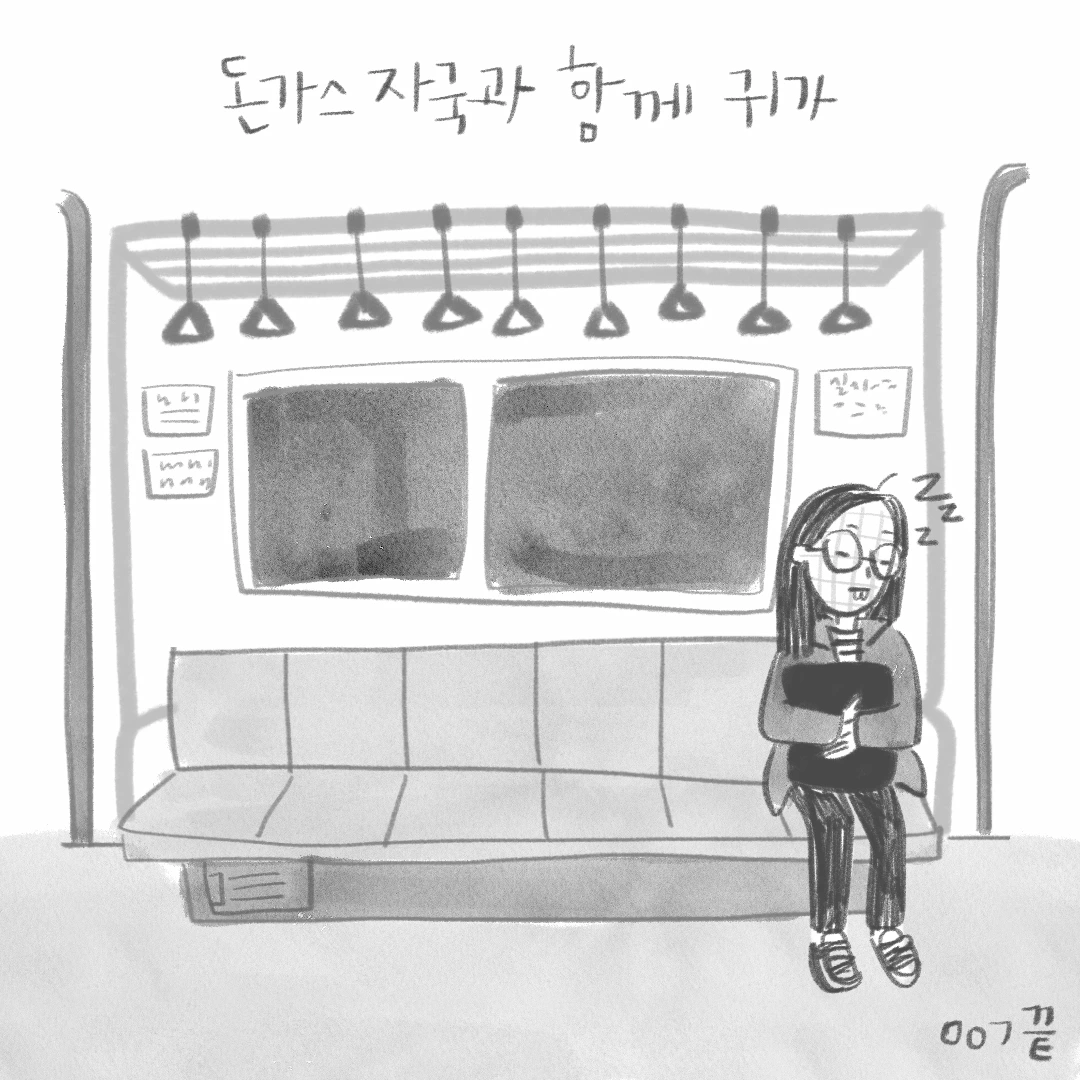 돈가스 자국과 함께 귀가
z
z
z
007 끝